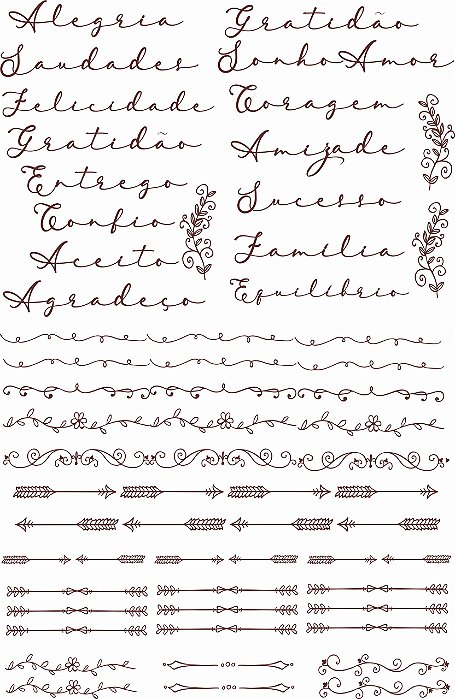 Alegria
Saudades
Felicidade
Gratidão
Entrego
Confio
Aceito
Agradeço
Gratidão
Sonho Amor
Coragem
Amizade
Sucesso
Família
Equilibrio